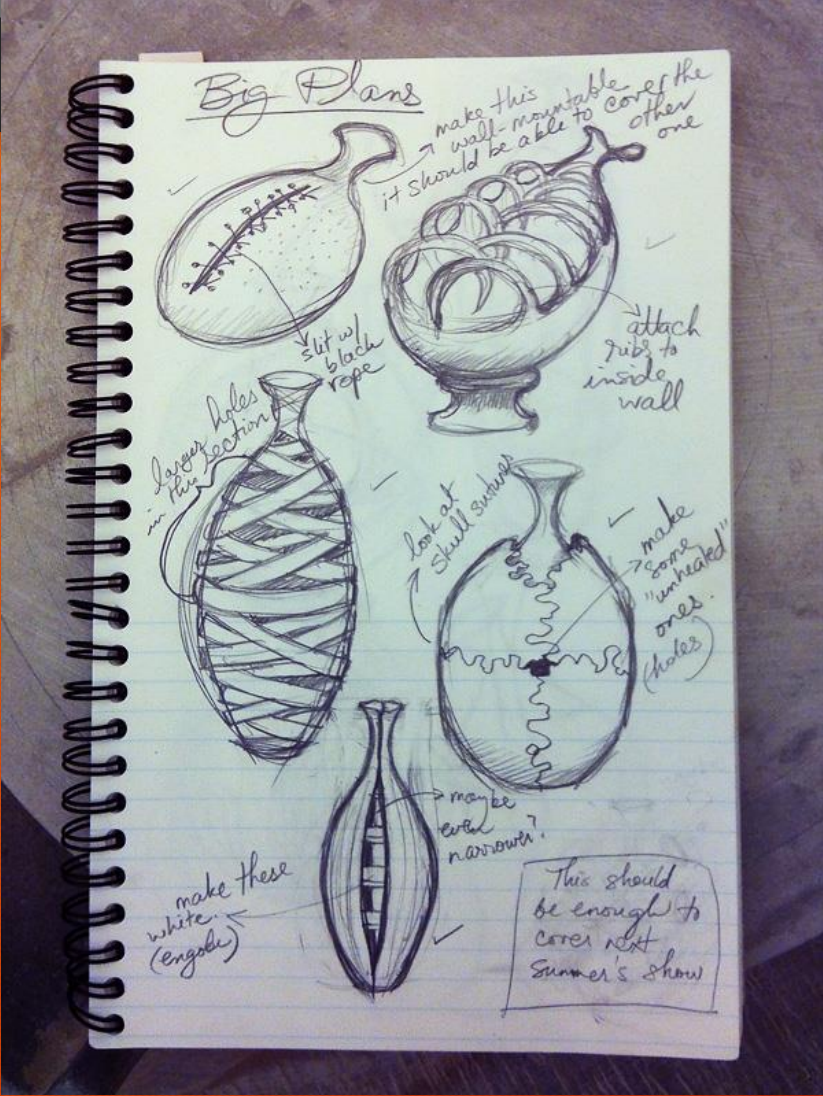 Big Plans
make this
wall-mountable
it should be able to cover the
other
one
slit w/
black
rope
attach
ribs to
inside
wall
larger holes
in this section
look at
skull sutures
make
some
"unhealed"
ones.
(holes)
maybe
even
narrower?
make these
white.
(engobe)
This should
be enough to
cover next
Summer's show